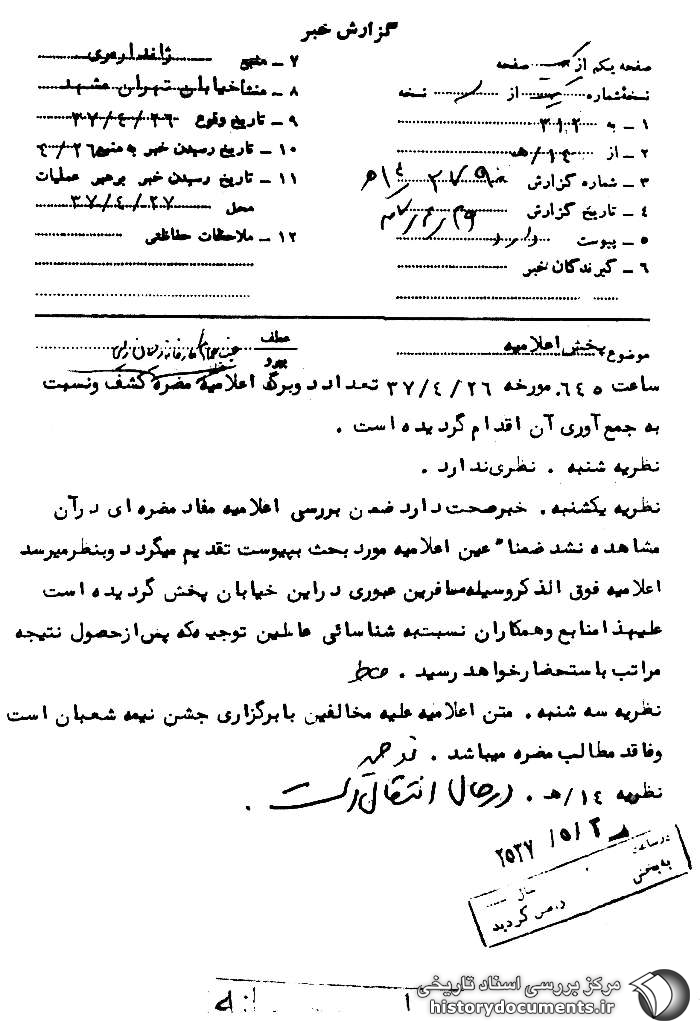 گزارش خبر
صفحه یکم از یک صفحه
نسخه شماره از نسخه
۱ - به ۳۱۲
۲ - از ۱۴/هـ
۳ - شماره گزارش
۴ - تاریخ گزارش
۵ - پیوست دارد
۶ - گیرندگان خبر
۷ - منبع ژاندارمری
۸ - منشا خیابان تهران مشهد
۹ - تاریخ وقوع ۳۷/۴/۲۶
۱۰ - تاریخ رسیدن خبر به منبع ۴/۲۶
۱۱ - تاریخ رسیدن خبر برهبر عملیات
محل ۳۷/۴/۲۷
۱۲ - ملاحظات حفاظتی
موضوع پخش اعلامیه
عطف
بپیرو
ساعت ۶۴۵. مورخه ۳۷/۴/۲۶ تعداد دوبرگ اعلامیه مضره کشف ونسبت
به جمع آوری آن اقدام گردیده است .
نظریه شنبه . نظری ندارد .
نظریه یکشنبه . خبرصحت دارد ضمن بررسی اعلامیه مفاد مضره ای درآن
مشاهده نشد ضمنا" عین اعلامیه مورد بحث بپیوست تقدیم میگردد وبنظرمیرسد
اعلامیه فوق الذکروسیله مسافرین عبوری دراین خیابان پخش گردیده است
علیهذا منابع وهمکاران نسبت به شناسائی عاملین توجیه که پس ازحصول نتیجه
مراتب باستحضارخواهد رسید .
نظریه سه شنبه . متن اعلامیه علیه مخالفین بابرگزاری جشن نیمه شعبان است
وفاقد مطالب مضره میباشد .
نظریه ۱۴/هـ . درحال انتقال است .
۲۵۳۷/۵/۲
درساعت
به بخش
سال
گردید
مرکز بررسی اسناد تاریخی
historydocuments.ir